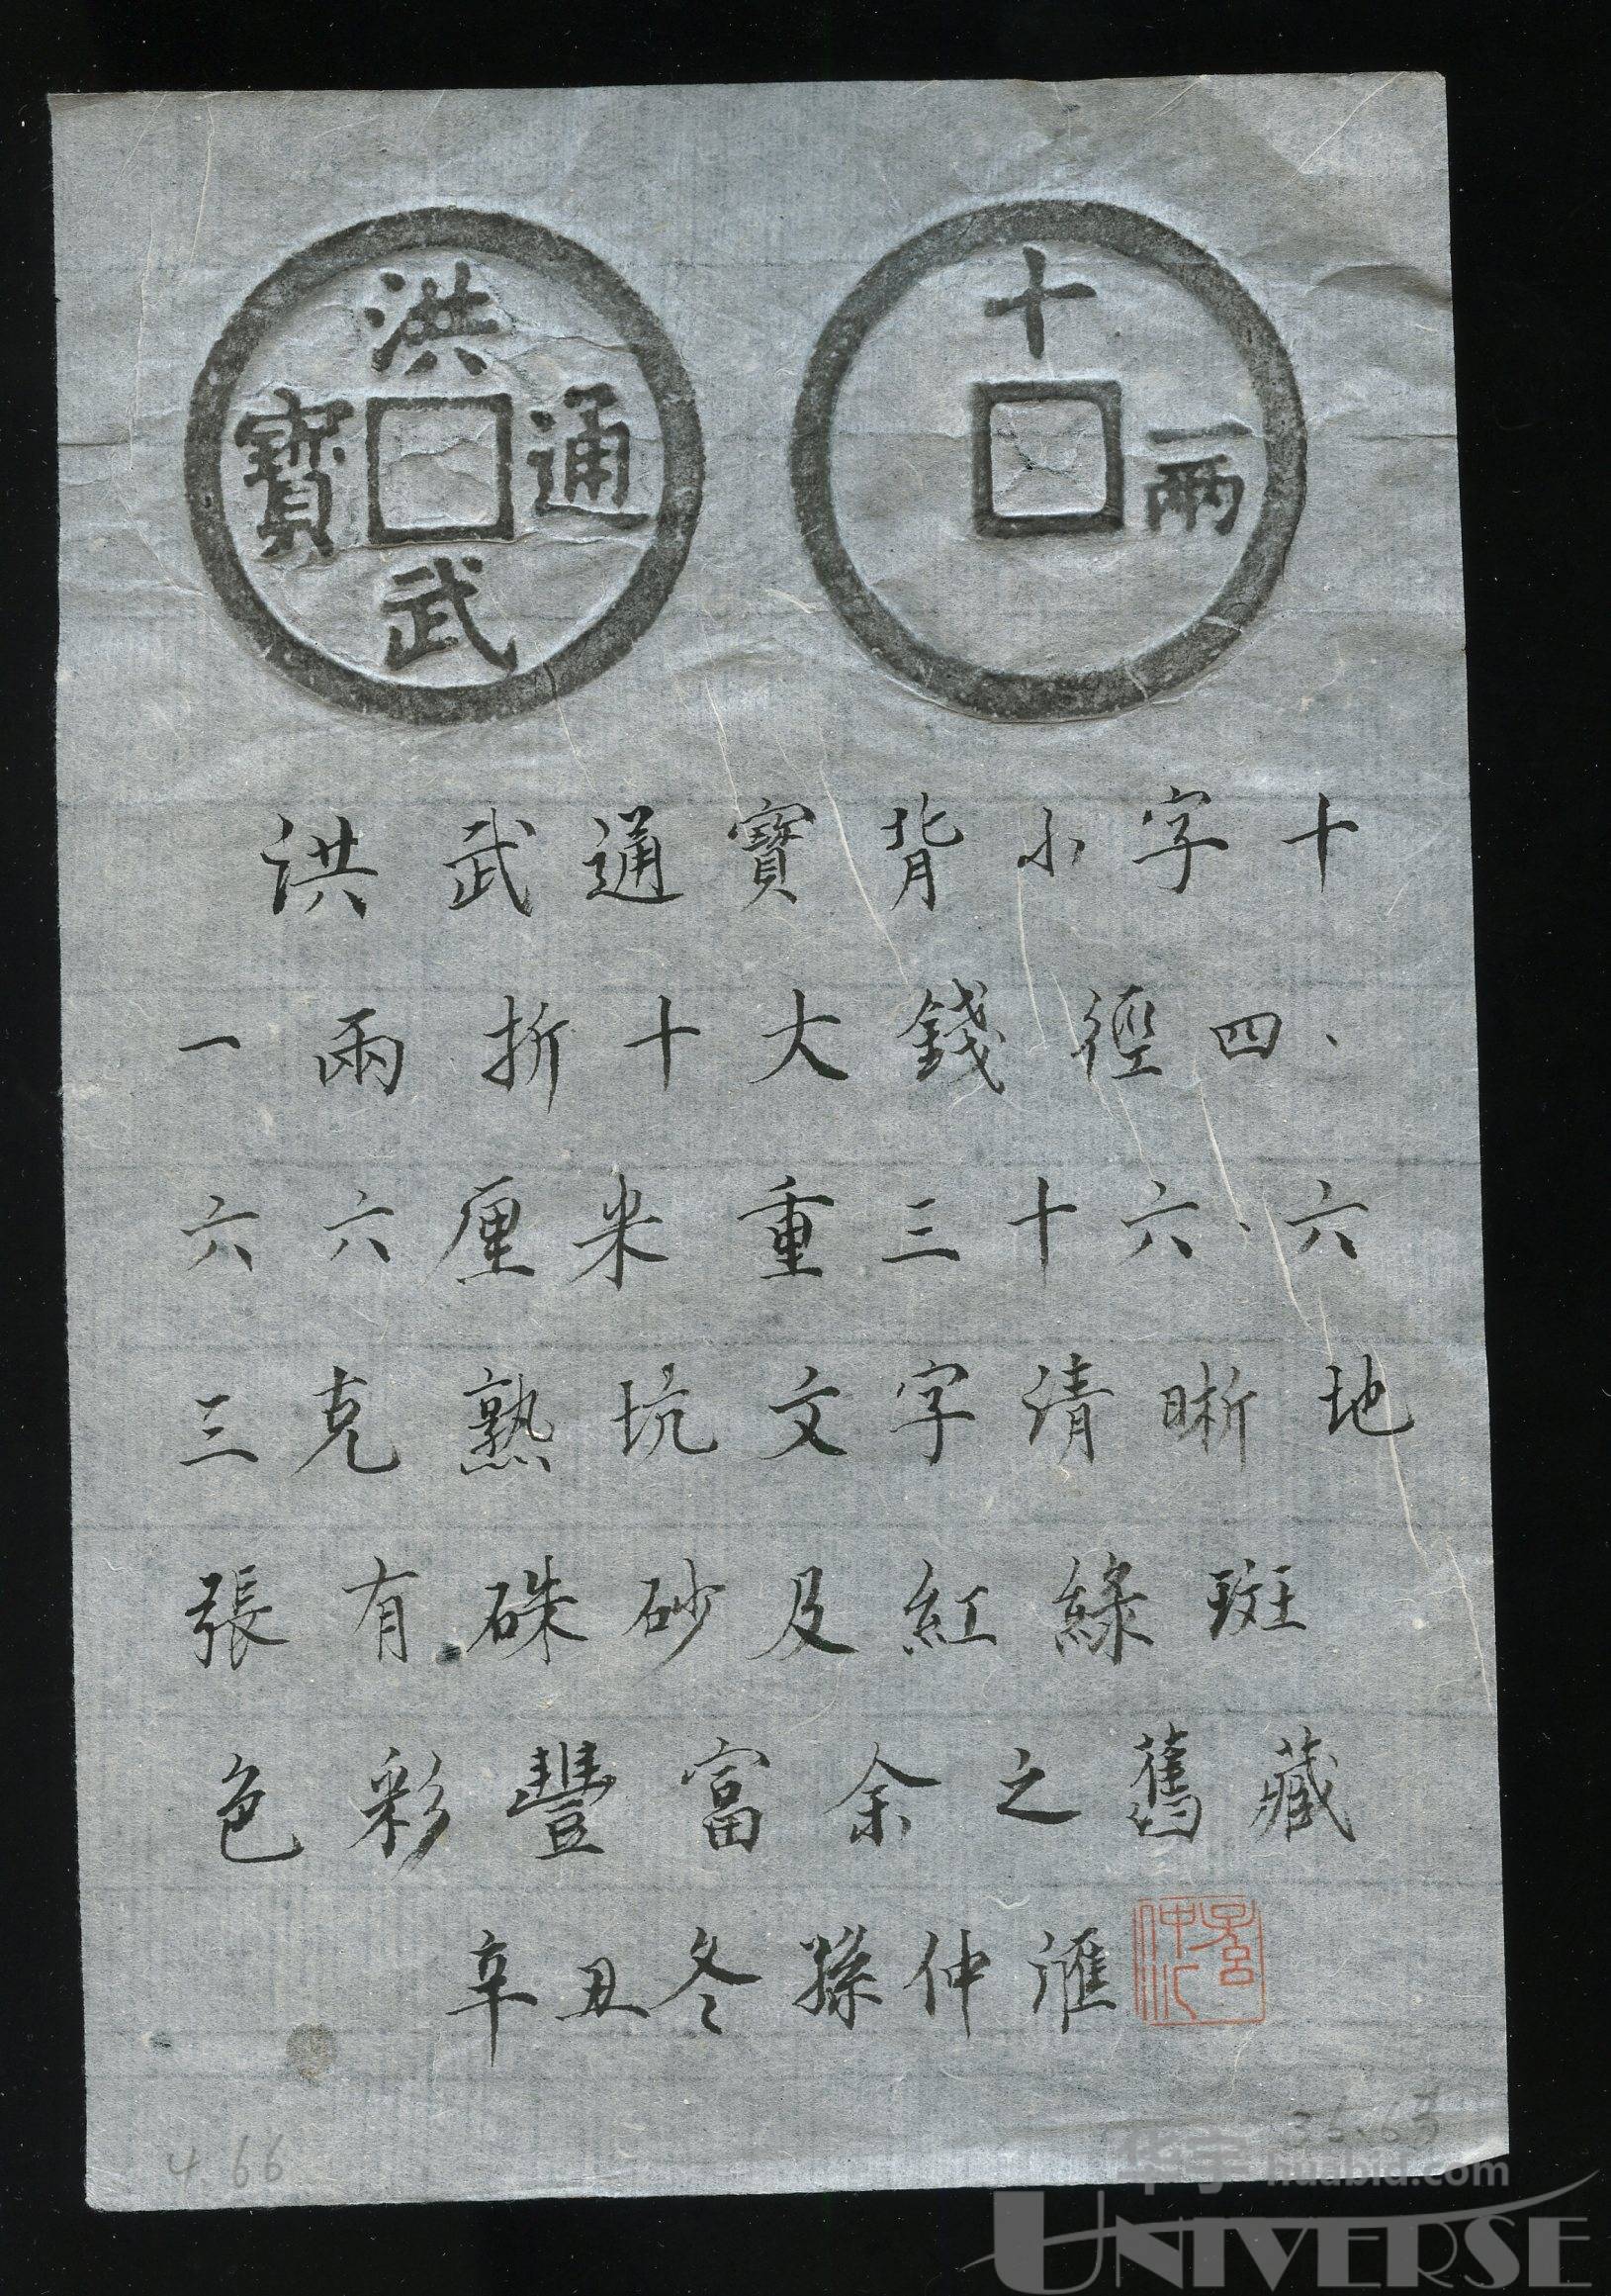 洪武通寶
十一兩
洪武通寶背小字十
一兩折十大錢徑四、
六六厘米重三十六、六
三克熟坑文字清晰地
張有硃砂及紅綠斑
色彩豐富余之舊藏
辛丑冬孫仲滙
孫仲匯
4.66
36.63
华宇 huabid.com
UNIVERSE